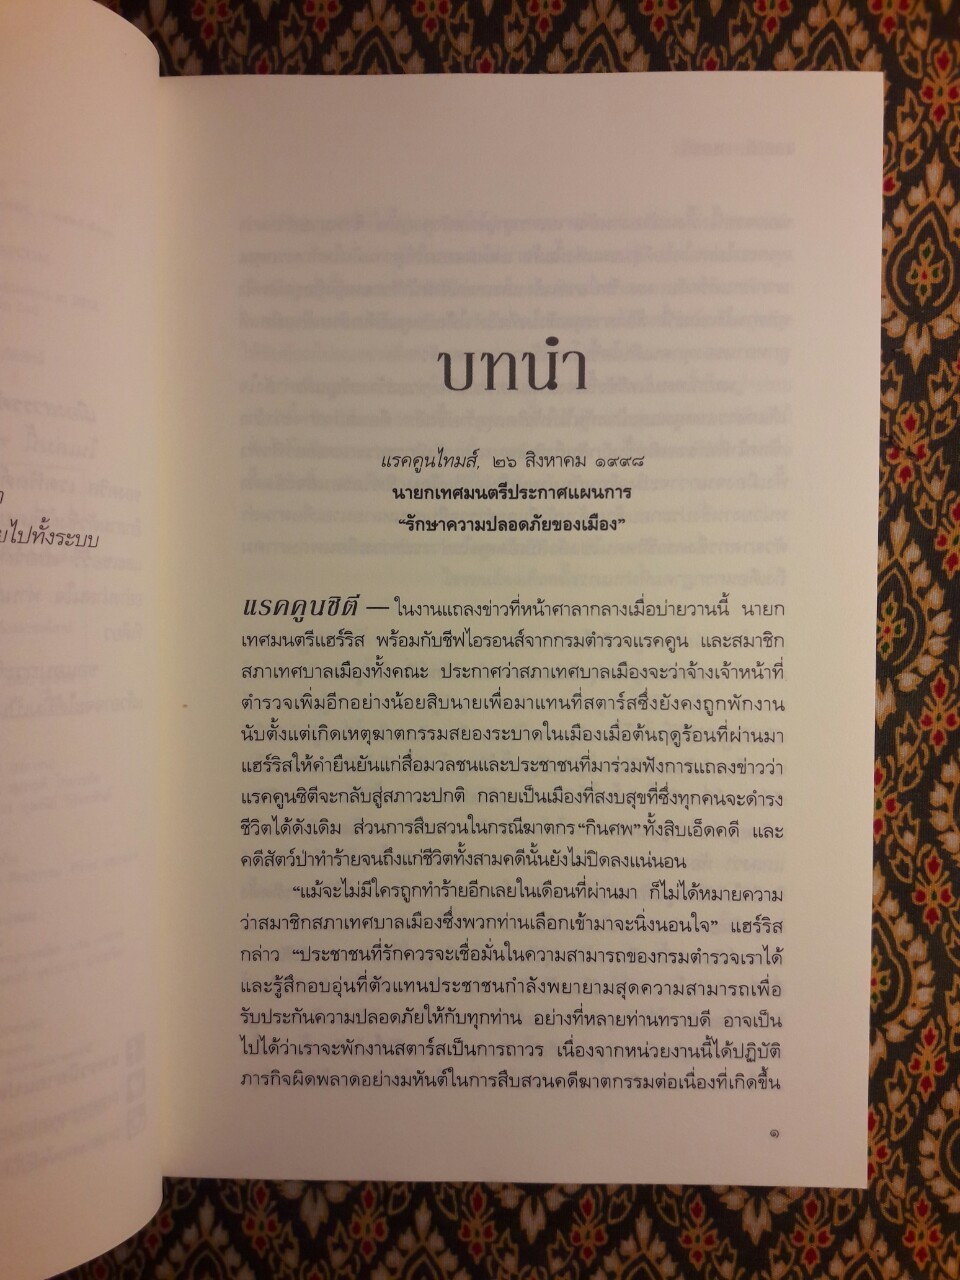 ยไปทั้งระบบ
บทนำ
แรคคูนไทมส์, ๒๖ สิงหาคม ๑๙๙๘
นายกเทศมนตรีประกาศแผนการ
“รักษาความปลอดภัยของเมือง”
แรคคูนซิตี — ในงานแถลงข่าวที่หน้าศาลากลางเมื่อบ่ายวานนี้ นายก
เทศมนตรีแฮร์ริส พร้อมกับชีฟไอรอนส์จากกรมตำรวจแรคคูน และสมาชิก
สภาเทศบาลเมืองทั้งคณะ ประกาศว่าสภาเทศบาลเมืองจะว่าจ้างเจ้าหน้าที่
ตำรวจเพิ่มอีกอย่างน้อยสิบนายเพื่อมาแทนที่สตาร์สซึ่งยังคงถูกพักงาน
นับตั้งแต่เกิดเหตุฆาตกรรมสยองระบาดในเมืองเมื่อต้นฤดูร้อนที่ผ่านมา
แฮร์ริสให้คำยืนยันแก่สื่อมวลชนและประชาชนที่มาร่วมฟังการแถลงข่าวว่า
แรคคูนซิตีจะกลับสู่สภาวะปกติ กลายเป็นเมืองที่สงบสุขที่ซึ่งทุกคนจะดำรง
ชีวิตได้ดังเดิม ส่วนการสืบสวนในกรณีฆาตกร“กินศพ”ทั้งสิบเอ็ดคดี และ
คดีสัตว์ป่าทำร้ายจนถึงแก่ชีวิตทั้งสามคดีนั้นยังไม่ปิดลงแน่นอน
“แม้จะไม่มีใครถูกทำร้ายอีกเลยในเดือนที่ผ่านมา ก็ไม่ได้หมายความ
ว่าสมาชิกสภาเทศบาลเมืองซึ่งพวกท่านเลือกเข้ามาจะนิ่งนอนใจ” แฮร์ริส
กล่าว “ประชาชนที่รักควรจะเชื่อมั่นในความสามารถของกรมตำรวจเราได้
และรู้สึกอบอุ่นที่ตัวแทนประชาชนกำลังพยายามสุดความสามารถเพื่อ
รับประกันความปลอดภัยให้กับทุกท่าน อย่างที่หลายท่านทราบดี อาจเป็น
ไปได้ว่าเราจะพักงานสตาร์สเป็นการถาวร เนื่องจากหน่วยงานนี้ได้ปฏิบัติ
ภารกิจผิดพลาดอย่างมหันต์ในการสืบสวนคดีฆาตกรรมต่อเนื่องที่เกิดขึ้น
๑